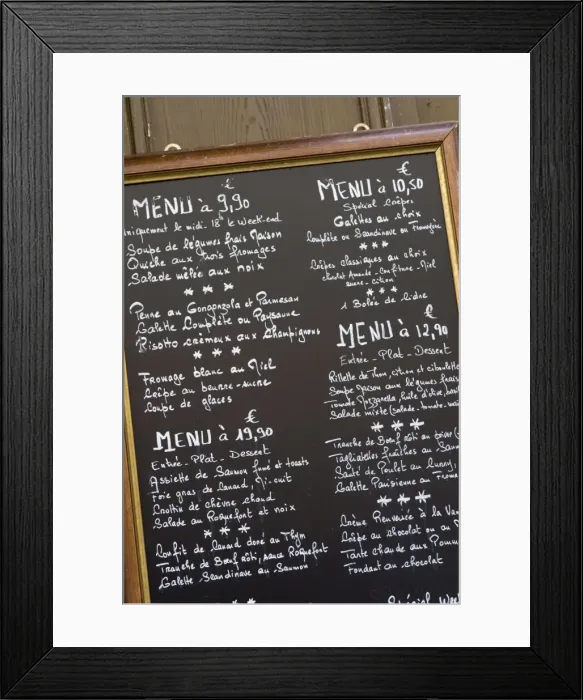 €
MENU à 9,90
niquement le midi. 18€ le Week-end
Soupe de légumes frais Maison
Quiche aux trois fromages
Salade mêlée aux noix
***
Penne au Gongonzola et Parmesan
Galette Complète ou Paysanne
Risotto crémeux aux champignons
***
Fromage blanc au Miel
Crêpe au beurre-sucre
Coupe de glaces
€
MENU à 19,90
Entrée - Plat - Dessert
Assiette de Saumon fumé et toasts
Foie gras de Canard, Mi-cuit
Crottin de chèvre chaud
Salade au Roquefort et noix
***
Confit de Canard doré au Thym
Tranche de Bœuf rôti, sauce Roquefort
Galette Scandinave au Saumon
€
MENU à 10,50
Spécial Crêpes
Galettes au choix
Complète ou Scandinave ou Fromagère
***
Crêpes classiques au choix
chocolat Amande - Confiture - Miel
sucre - citron
***
1 Bolée de Cidre
€
MENU à 12,90
Entrée - Plat - Dessert
Rillette de Thon, citron et ciboulette
Soupe Maison aux légumes frais
Tomate Mozzarella, huile d'olive, basi
Salade mixte (salade - tomate - maï
***
Tranche de Bœuf rôti au poivre (
Tagliatelles fraîches au Saum
Sauté de Poulet au Curry,
Galette Parisienne au From
***
Crème Renversée à la Van
Crêpe au chocolat ou au
Tarte chaude aux Pomm
Fondant au chocolat
Spécial Wee